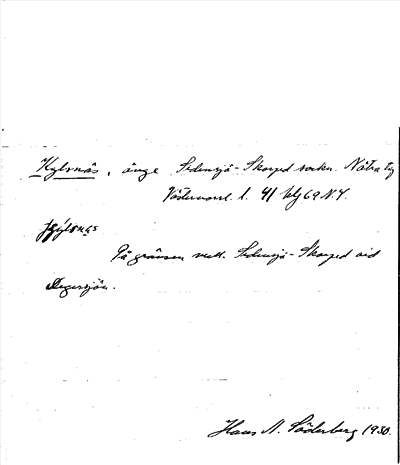 Kylsnäs, änge Sidensjö-Skorped socken. Nätra tg
Västernorrl. l. 41 blj 69 N.Y.
Kýlsnäs
På gränsen mell. Sidensjö-Skorped vid
Degersjön.
Hans N. Söderberg 1930.